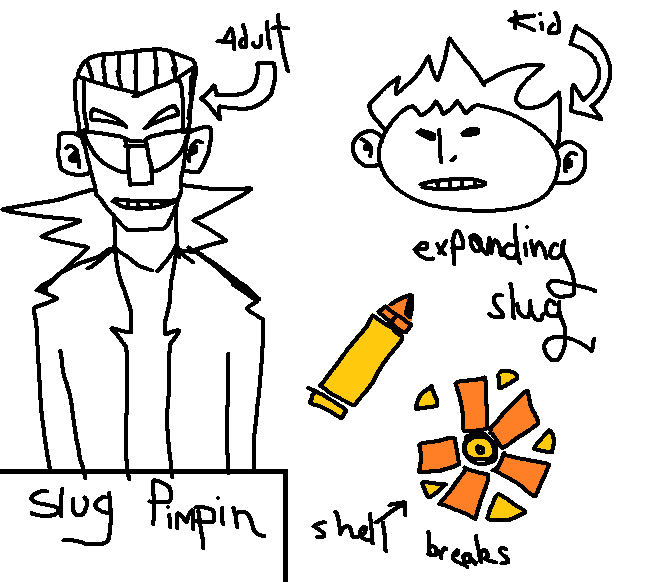 Adult
Kid
expanding
slug
Slug Pimpin
shell
breaks